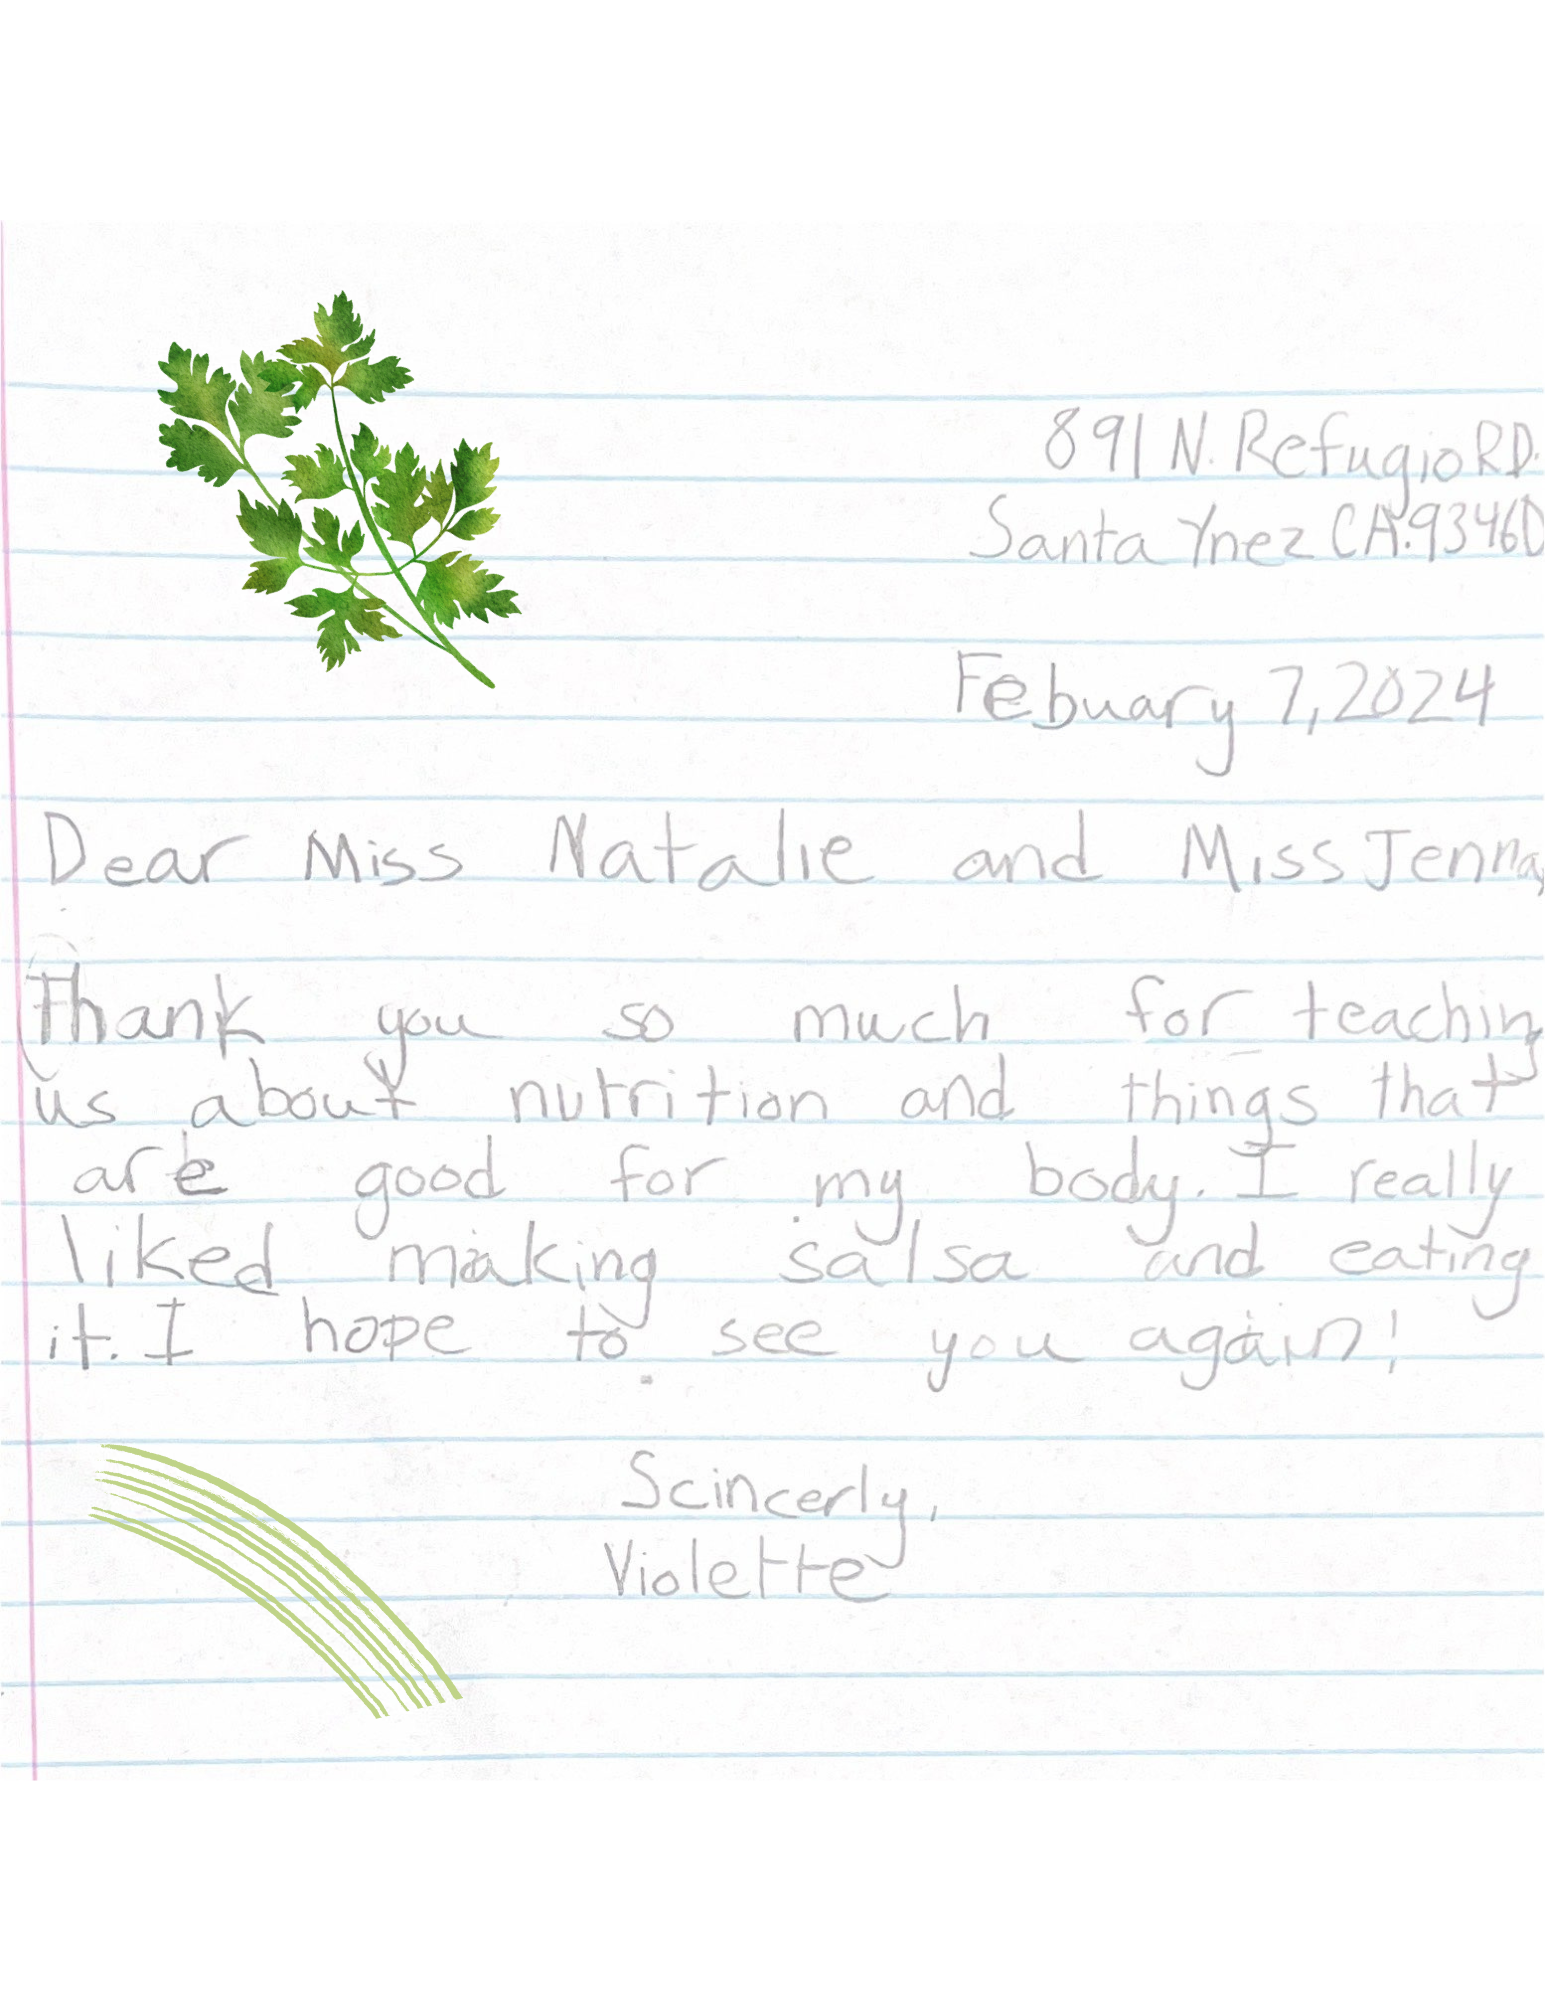 891 N. Refugio RD.
Santa Ynez CA. 93460
Febuary 7, 2024
Dear Miss Natalie and Miss Jenna,
Thank you so much for teaching
us about nutrition and things that
are good for my body. I really
liked making salsa and eating
it. I hope to see you again!
Scincerly,
Violette